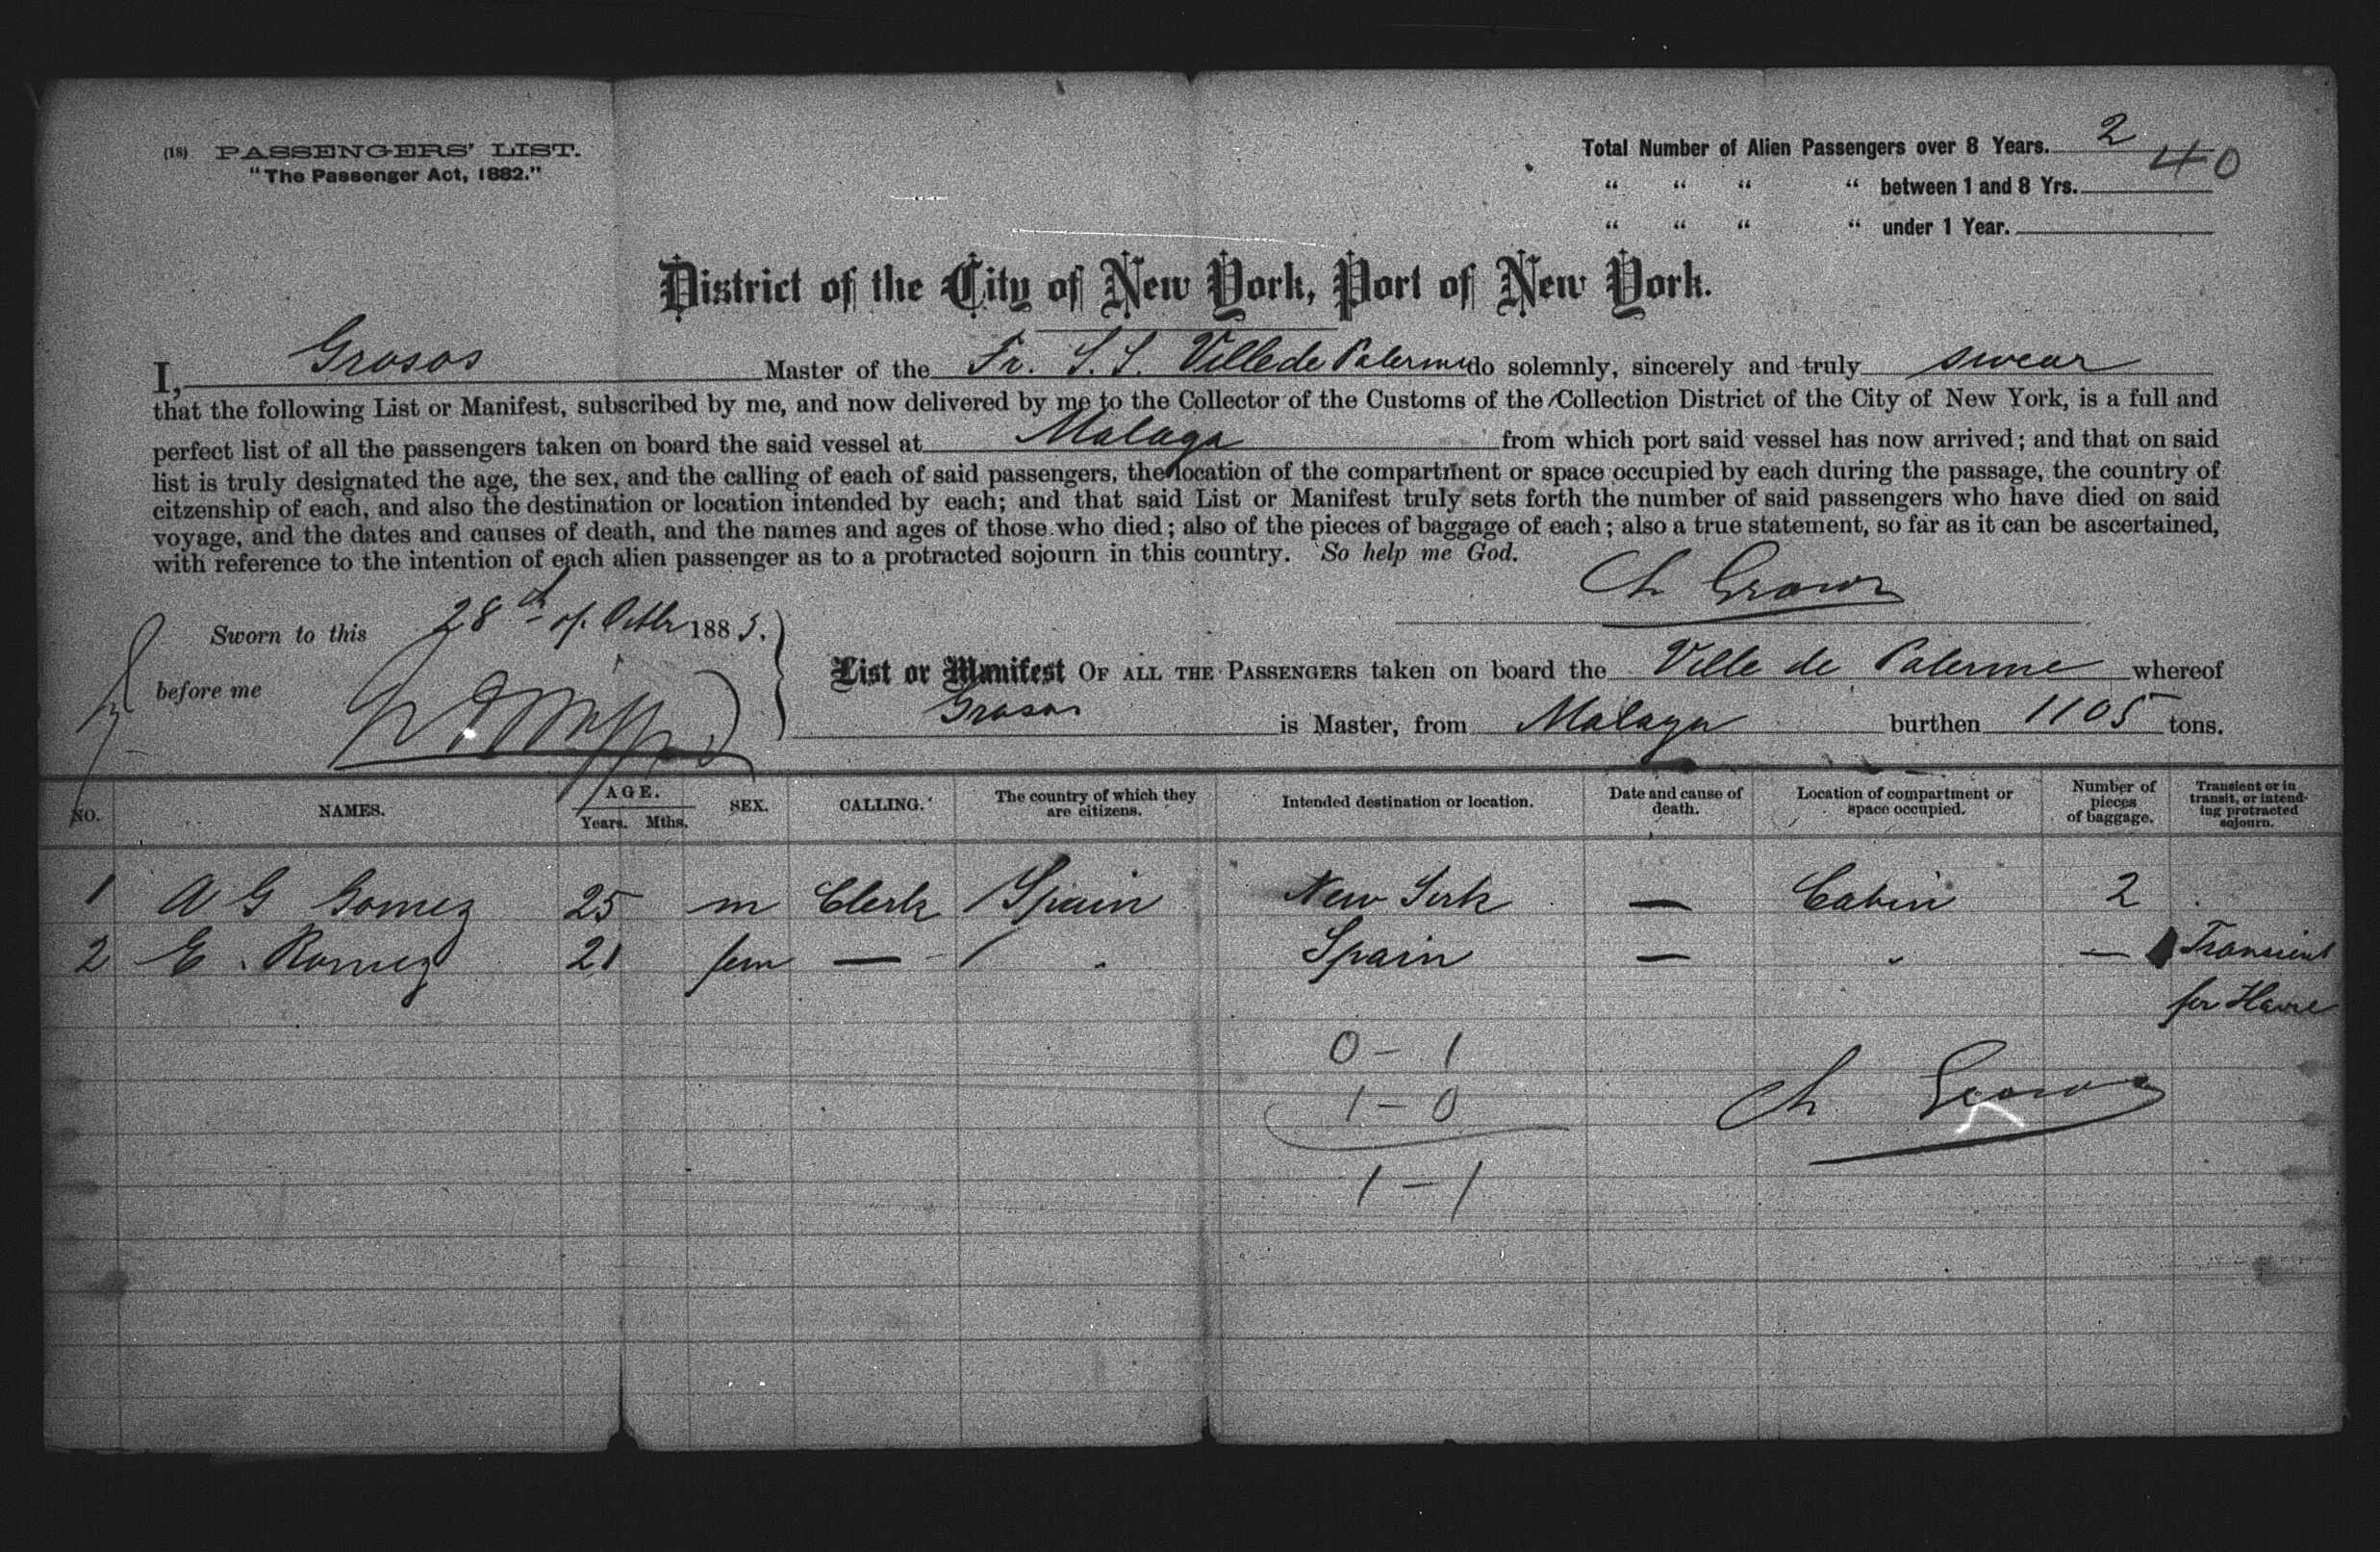 (18) PASSENGERS' LIST.
"The Passenger Act, 1882."
Total Number of Alien Passengers over 8 Years. 2
40
" " " " between 1 and 8 Yrs.
" " " " under 1 Year.
District of the City of New York, Port of New York.
I, Grosos Master of the Fr. S.S. Ville de Palerme do solemnly, sincerely and truly swear
that the following List or Manifest, subscribed by me, and now delivered by me to the Collector of the Customs of the Collection District of the City of New York, is a full and
perfect list of all the passengers taken on board the said vessel at Malaga from which port said vessel has now arrived; and that on said
list is truly designated the age, the sex, and the calling of each of said passengers, the location of the compartment or space occupied by each during the passage, the country of
citzenship of each, and also the destination or location intended by each; and that said List or Manifest truly sets forth the number of said passengers who have died on said
voyage, and the dates and causes of death, and the names and ages of those who died; also of the pieces of baggage of each; also a true statement, so far as it can be ascertained,
with reference to the intention of each alien passenger as to a protracted sojourn in this country. So help me God.
Ch Grosos
Sworn to this 28th of Octbr 1885.
before me
List or Manifest OF ALL THE PASSENGERS taken on board the Ville de Palerme whereof
Grosos is Master, from Malaga burthen 1105 tons.
NO. NAMES. AGE. Years. Mths. SEX. CALLING. The country of which they are citizens. Intended destination or location. Date and cause of death. Location of compartment or space occupied. Number of pieces of baggage. Transient or in transit, or intending protracted sojourn.
1 A G Gomez 25 m Clerk Spain New York — Cabin 2
2 E. Romez 21 fem — " Spain — " — Transient
for Havre
0 - 1
1 - 0
Ch Grosos
1 - 1